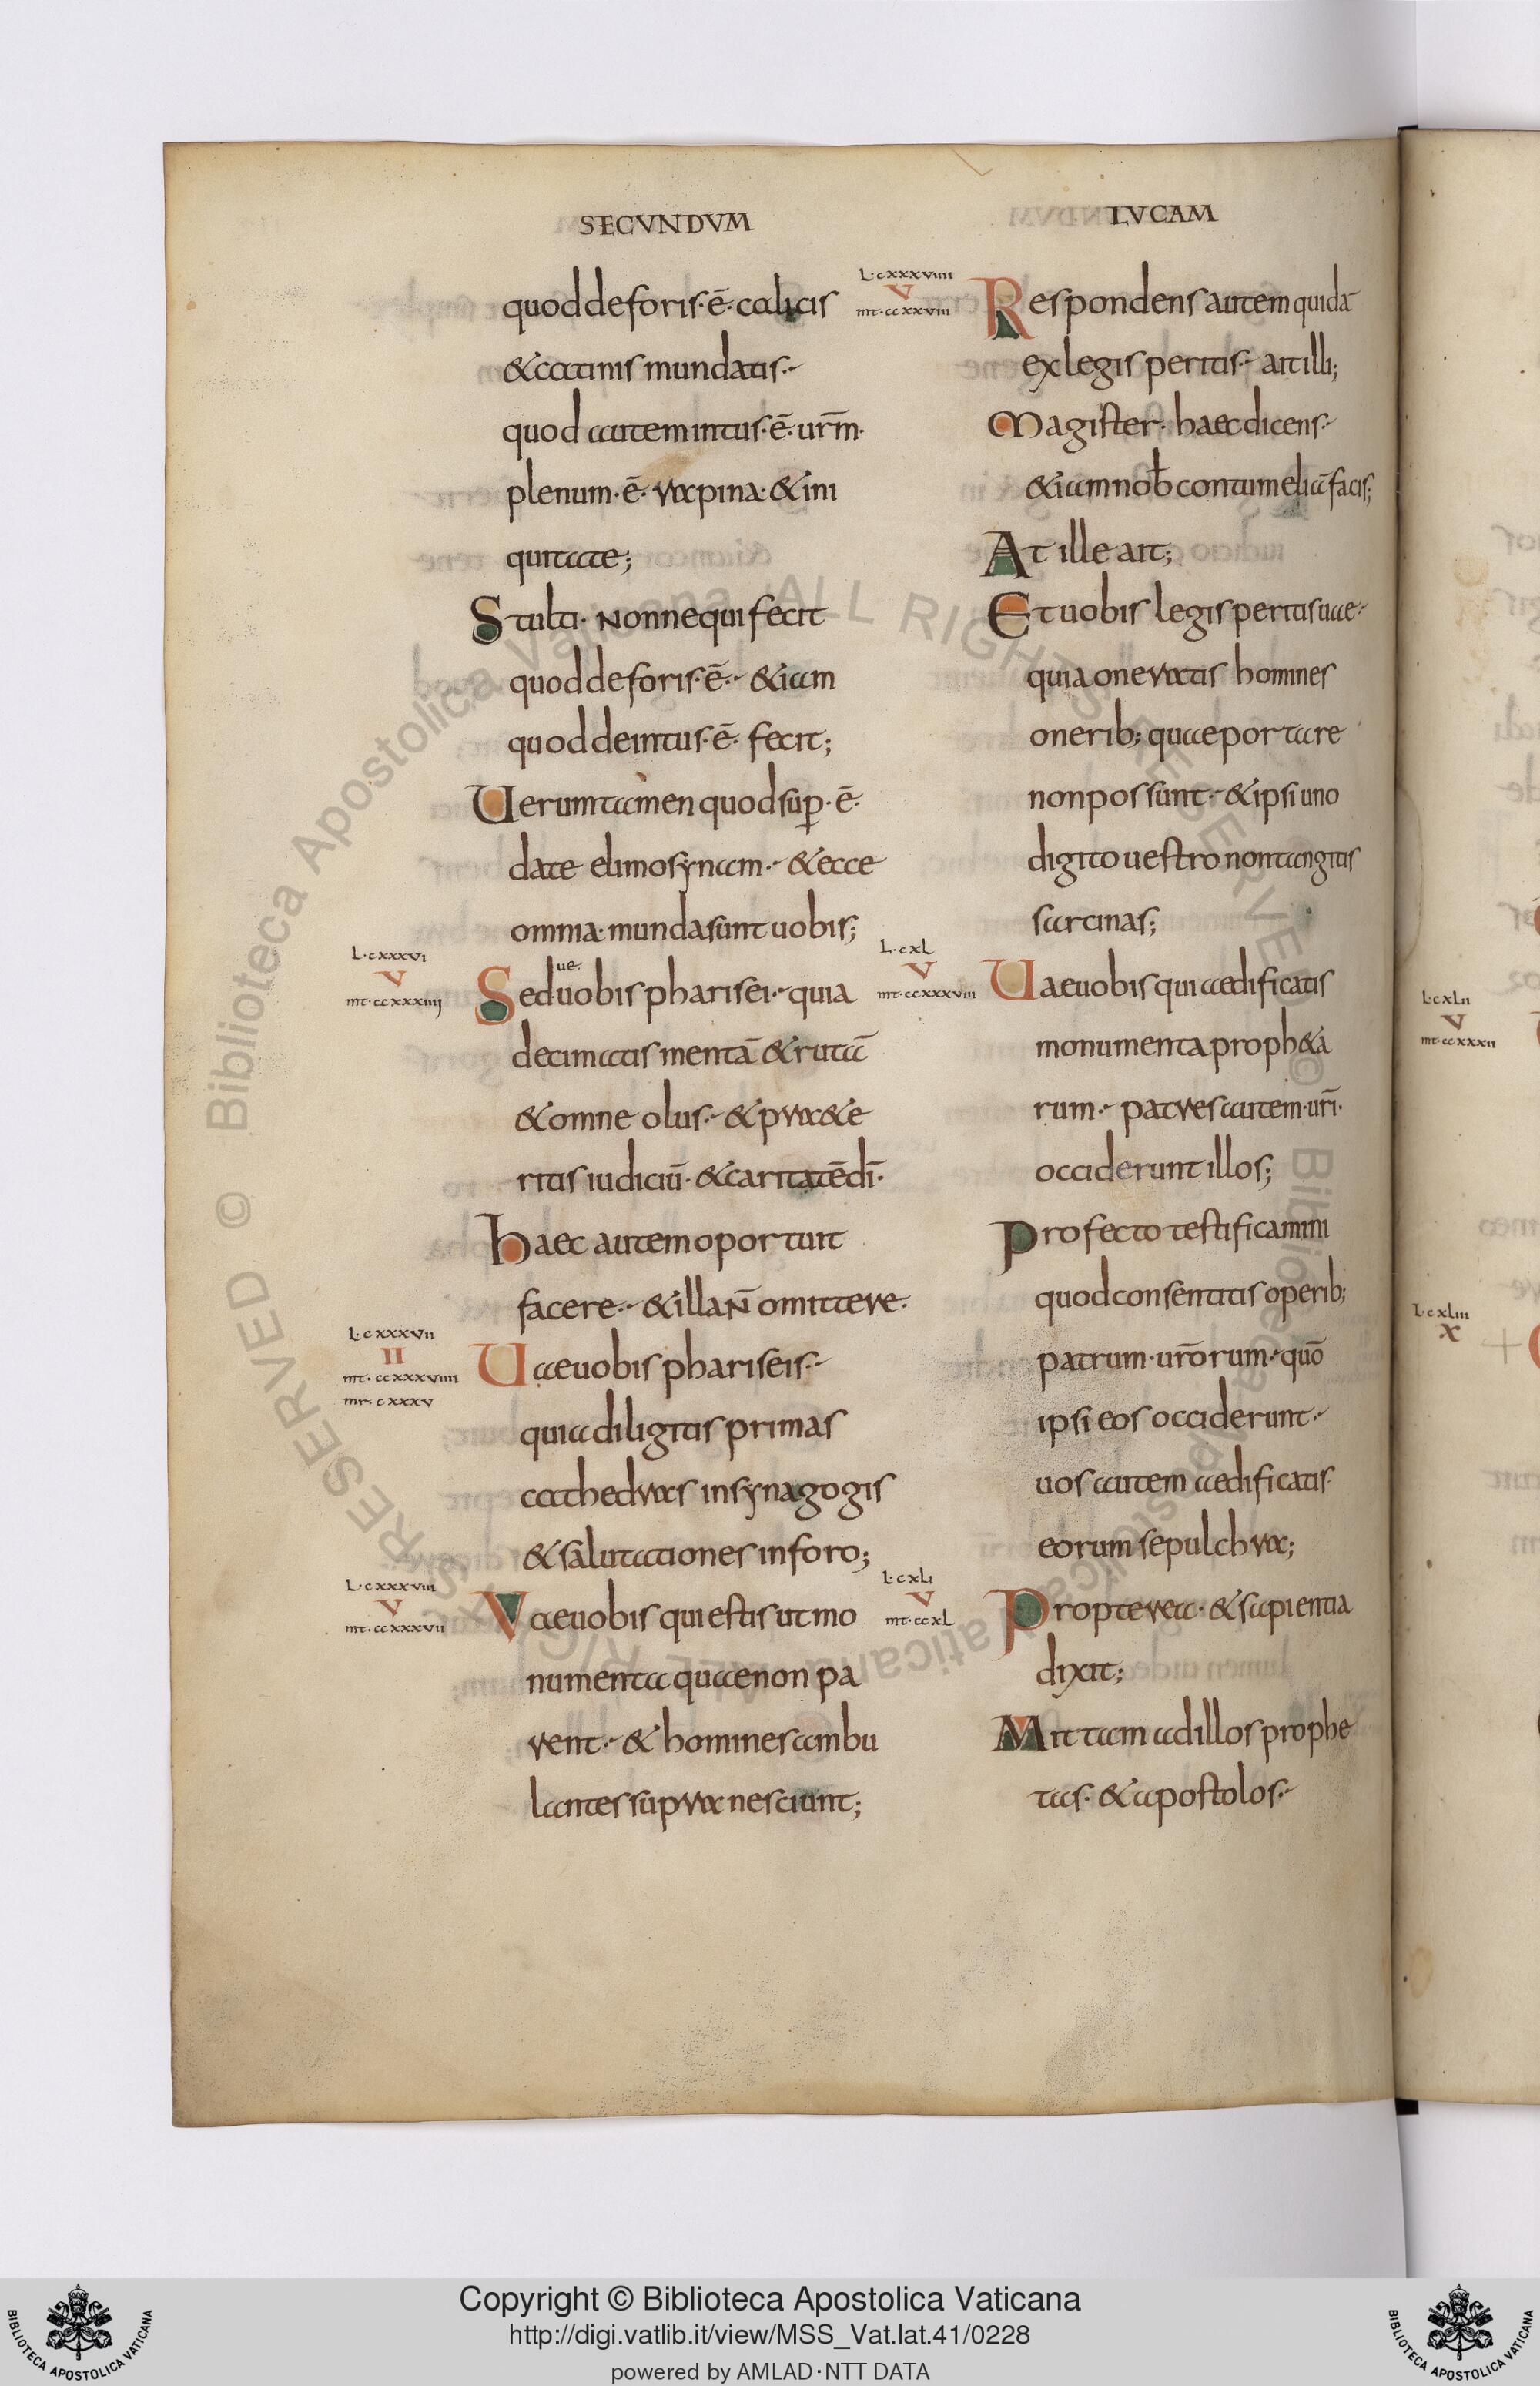 SECVNDVM
quod deforis·ē·calicis
&catinis mundatis·
quod autem intus·ē·ur̄m·
plenum·ē·rapina·&ini
quitate;
Stulti· Nonne qui fecit
quod deforis·ē· &iam
quod deintus·ē· fecit;
Uerumtamen quod sup̄·ē·
date elimosynam· &ecce
omnia·munda sunt uobis;
L·cxxxvi
V
mt·ccxxxiiij
ue
Sed uobis pharisei· quia
decimatis mentā &rutā
&omne olus· &pra&e
ritis iudiciū·&caritatē dī·
Haec autem oportuit
facere· &illa N̄ omittere·
L·cxxxvii
II
mt·ccxxxviiii
mr·cxxxv
Uae uobis phariseis·
quia diligitis primas
cathedras in synagogis
&salutationes in foro;
L·cxxxviii
V
mt·ccxxxvii
Vae uobis qui estis ut mo
numenta quae non pa
rent· & homines ambu
lantes supra nesciunt;
LVCAM
L·cxxxviiii
V
mt·ccxxviii
Respondens autem quidā
ex legis peritis· ait illi;
Magister· haec dicens·
&iam nob̄ contumeliā facis;
At ille ait;
Et uobis legis peritis uae·
quia oneratis homines
onerib; quae portare
non possunt· &ipsi uno
digito uestro non tangitis
sarcinas;
L·cxL
V
mt·ccxxxviii
Uae uobis qui aedificatis
monumenta proph&a
rum· patres autem·ur̄i·
occiderunt illos;
Profecto testificamini
quod consentitis operib;
patrum·ur̄orum·quō
ipsi eos occiderunt·
uos autem aedificatis
eorum sepulchra;
L·cxLi
V
mt·ccxL
Propterea·&sapientia
dixit;
Mittam ad illos prophe
tas· &apostolos·
L·cxLii
V
mt·ccxxxii
L·cxLiii
X
Copyright © Biblioteca Apostolica Vaticana
http://digi.vatlib.it/view/MSS_Vat.lat.41/0228
powered by AMLAD·NTT DATA
BIBLIOTECA APOSTOLICA VATICANA
BIBLIOTECA APOSTOLICA VATICANA